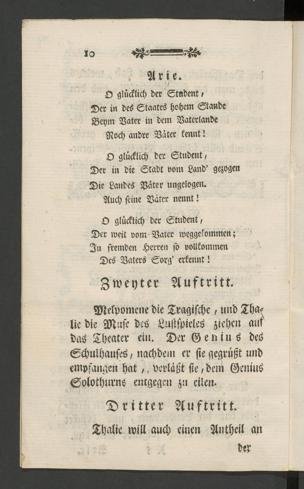 10
Arie.
O glücklich der Student,
Der in des Staates hohem Stande
Beym Vater in dem Vaterlande
Noch andre Väter kennt!
O glücklich der Student,
Der in die Stadt vom Land' gezogen
Die Landes Väter ungelogen.
Auch seine Väter nennt!
O glücklich der Student,
Der weit vom Vater weggekommen;
In fremden Herren so vollkommen
Des Vaters Sorg' erkennt!
Zweyter Auftritt.
Melpomene die Tragische, und Tha-
lie die Muse des Lustspieles ziehen auf
das Theater ein. Der Genius des
Schulhauses, nachdem er sie gegrüßt und
empfangen hat, verläßt sie, dem Genius
Solothurns entgegen zu eilen.
Dritter Auftritt.
Thalie will auch einen Antheil an
der